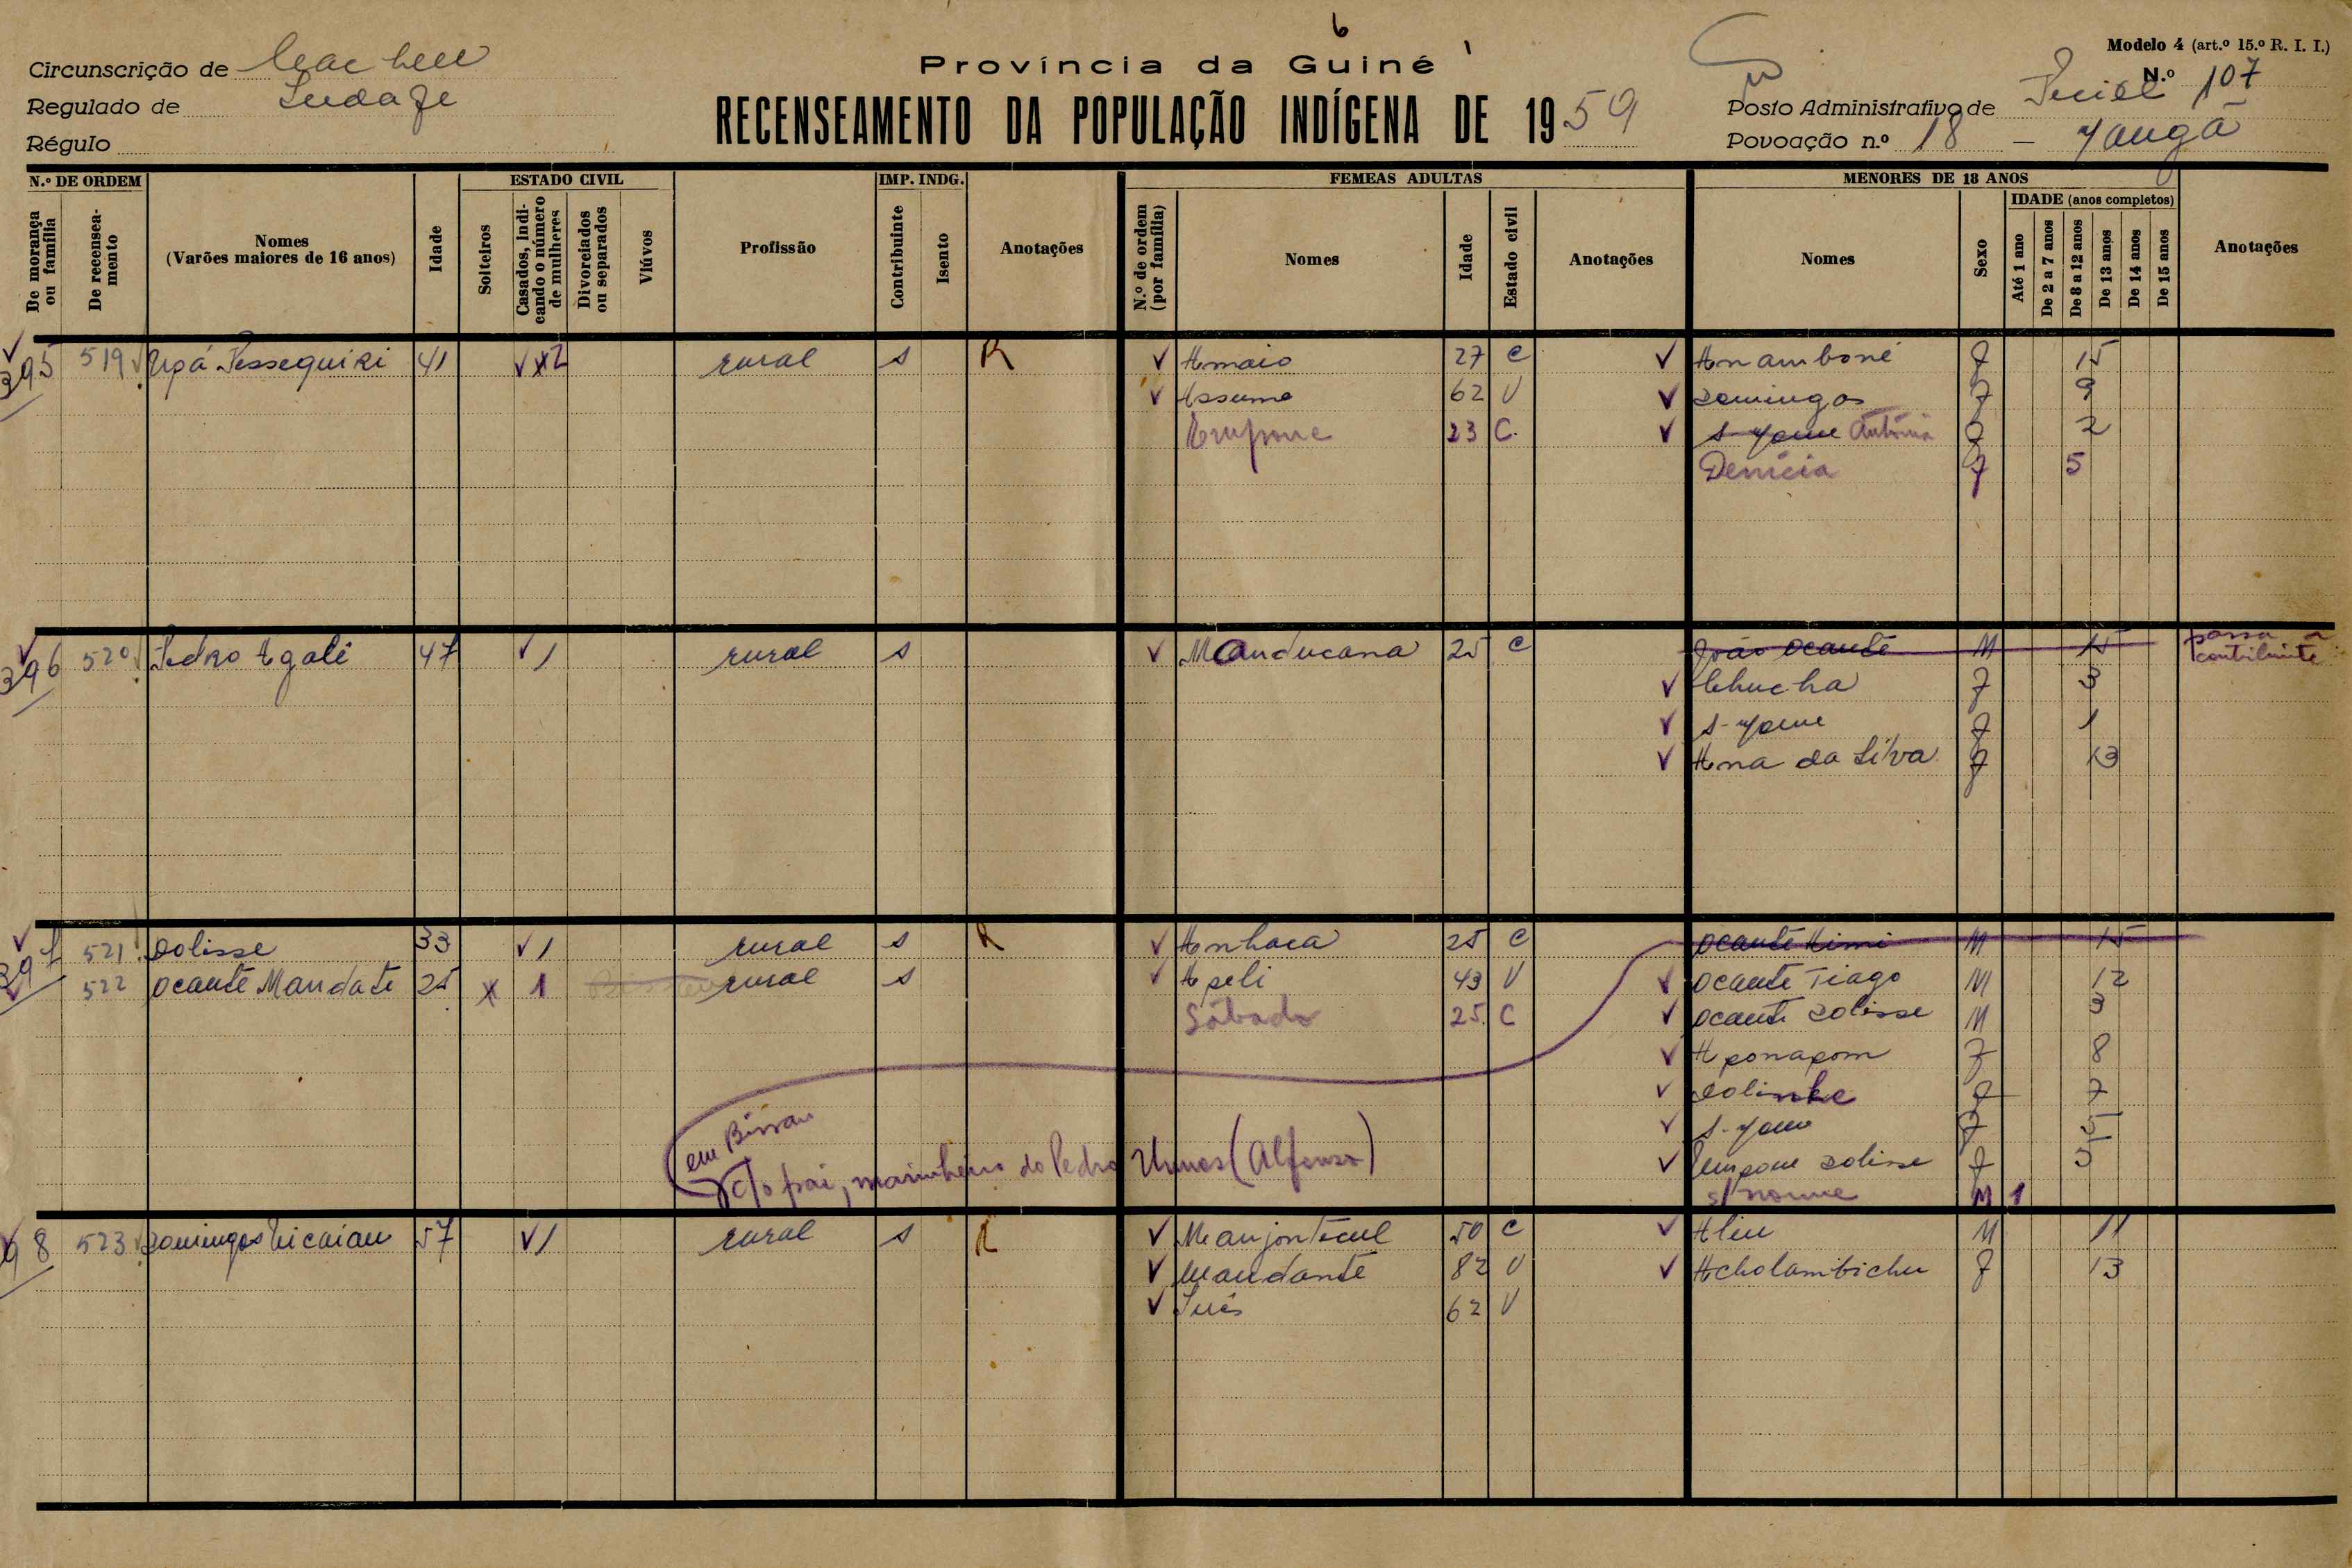 6
Província da Guiné
Modelo 4 (art.º 15.º R. I. I.)
N.º 107
Circunscrição de
Regulado de
Régulo
RECENSEAMENTO DA POPULAÇÃO INDÍGENA DE 1959
Posto Administrativo de
Povoação n.º 18 –
N.º DE ORDEM
De morança ou família
De recenseamento
Nomes
(Varões maiores de 16 anos)
Idade
ESTADO CIVIL
Solteiros
Casados, indicando o número de mulheres
Divorciados ou separados
Viúvos
Profissão
IMP. INDG.
Contribuinte
Isento
Anotações
FEMEAS ADULTAS
N.º de ordem (por família)
Nomes
Idade
Estado civil
Anotações
MENORES DE 18 ANOS
Nomes
Sexo
IDADE (anos completos)
Até 1 ano
De 2 a 7 anos
De 8 a 12 anos
De 13 anos
De 14 anos
De 15 anos
Anotações
395 519 41 2 rural s R Amaio 27 C Anamboné F 15
Assume 62 V Domingas F 9
23 C. Antónia F 2
Denícia F 5
396 520 Pedro Agali 47 1 rural s Manducana 25 C João Ocante M 15 passa a contribuinte
F 3
F 1
Ana da Silva F 13
397 521 Dolisse 33 1 rural s R Anhaca 25 C Ocante Mimi M 15
522 Ocante Mandate 25 x 1 rural s Apeli 43 V Ocante Tiago M 12
Sábado 25. C Ocante Dolisse M 3
Aponapom F 8
F 7
F 5
Dolisse F 5
s/ nome M 1
em Bissau
c/o pai, marinheiro do Pedro (Alfonso)
98 523 Domingos 57 1 rural s R 50 C Aliu M 11
Mandante 82 V F 13
Inês 62 V